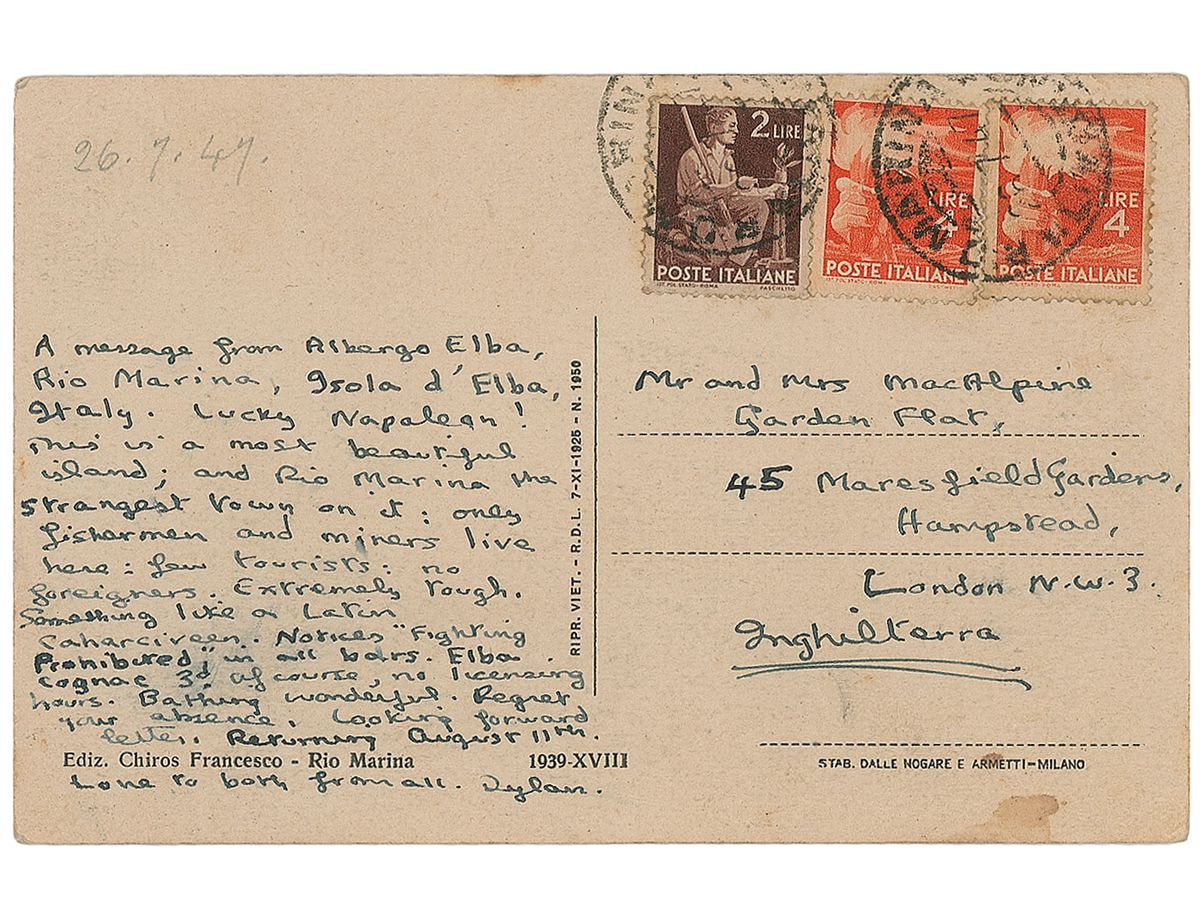 26.7.47.
2 LIRE
POSTE ITALIANE
IST. POL. STATO-ROMA PASCHETTO
LIRE
4
POSTE ITALIANE
LIRE
4
POSTE ITALIANE
A message from Albergo Elba,
Rio Marina, Isola d'Elba,
Italy. Lucky Napoleon!
This is a most beautiful
island; and Rio Marina the
strangest town on it: only
fishermen and miners live
here: few tourists: no
foreigners. Extremely tough.
Something like a Latin
Caharciveen. Notices "Fighting
Prohibited" in all bars. Elba
Cognac 3d. Of course, no licensing
hours. Bathing wonderful. Regret
your absence. Looking forward
letter. Returning August 11th.
Ediz. Chiros Francesco - Rio Marina 1939-XVIII
Love to both from all. Dylan.
RIPR. VIET. - R.D.L. 7-XI-1925 - N. 1950
Mr and Mrs MacAlpine
Garden Flat,
45 Maresfield Gardens,
Hampstead,
London N.W.3.
Inghilterra
STAB. DALLE NOGARE E ARMETTI-MILANO